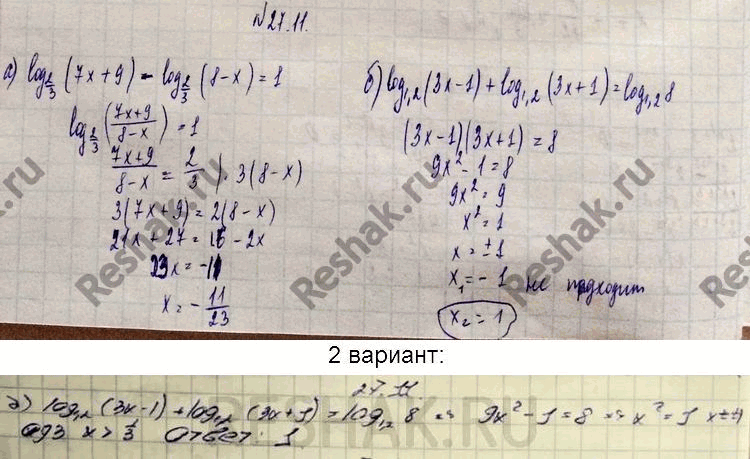 №27.11.
а) log_{2/3} (7x+9) - log_{2/3} (8-x) = 1
log_{2/3} ((7x+9)/(8-x)) = 1
(7x+9)/(8-x) = 2/3 | · 3(8-x)
3(7x+9) = 2(8-x)
21x + 27 = 16 - 2x
23x = -11
x = - 11/23
б) log_{1,2} (3x-1) + log_{1,2} (3x+1) = log_{1,2} 8
(3x-1)(3x+1) = 8
9x² - 1 = 8
9x² = 9
x² = 1
x = ±1
x₁ = - 1 не подходит
x₂ = 1
Reshak.ru
Reshak.ru
Reshak.ru
2 вариант:
27.11.
log_{1,2} (3x-1) + log_{1,2} (3x+1) = log_{1,2} 8 => 9x² - 1 = 8 => x² = 1 x=±1
одз x > 1/3 Ответ: 1.
RESHAK.RU